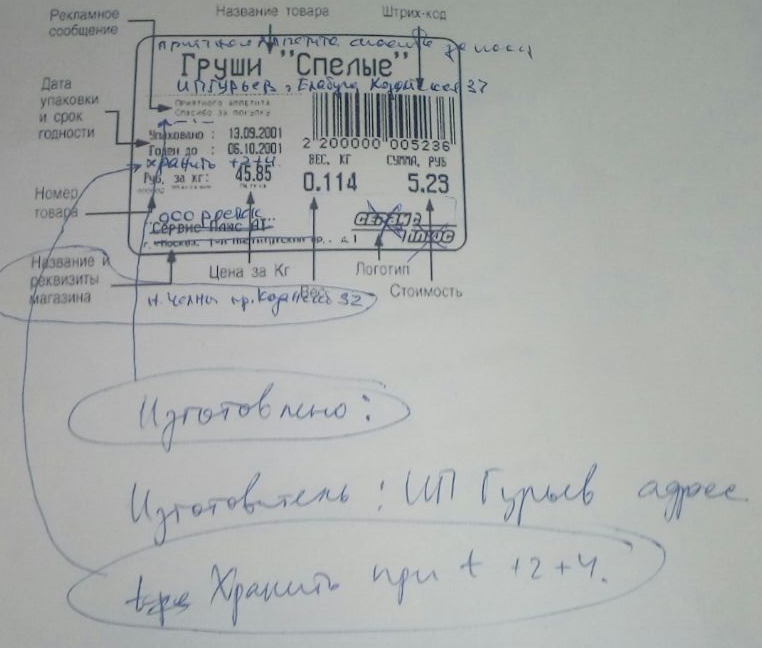 Рекламное сообщение
Название товара
Штрих-код
приятного аппетита спасибо
Груши "Спелые"
ИП Гурьев, Елабуга 37
Приятного аппетита
Спасибо за покупку
Дата упаковки и срок годности
Упаковано : 13.09.2001
Годен до : 06.10.2001
хранить +2+4
Руб. за кг: 45.85
2 200000 005236
ВЕС, КГ
СУММА, РУБ
0.114
5.23
Номер товара
ООО
"Сервис Плюс АТ"
СЕРВИС ПЛЮС
Название и реквизиты магазина
Цена за Кг
Вес
Логотип
Стоимость
Н. Челны пр. 32
Изготовлено:
Изготовитель: ИП Гурьев адрес
Хранить при t +2+4.